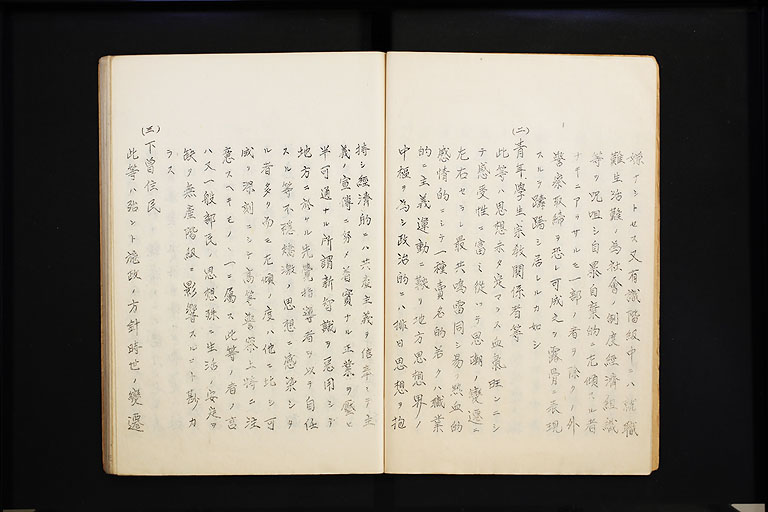 嫌アントセス又有識階級中ニハ就職
難生活難ノ為社会ノ制度経済組織
等ヲ咒咀シ自暴自棄的ニ左傾スル者
ナキニアラサルモ一部ノ者ヲ除クノ外
警察取締ヲ恐レ可成之ヲ露骨ニ表現
スルヲ躊躇シ居レルカ如シ
(二)青年学生宗教関係者等
此等ハ思想未タ定マラス血気旺ンニシ
テ感受性ニ富ミ従ツテ思潮ノ変遷ニ
左右セラレ最共鳴雷同シ易ク熱血的
感情的ニシテ一種売名的若クハ職業
的ニ主義運動ニ鞅リ地方思想界ノ
中枢ヲ為シ政治的ニハ排日思想ヲ抱
持シ経済的ニハ共産主義ヲ信奉シテ主
義ノ宣伝ニ努メ着実ナル正業ヲ厭ヒ
半可通ナル所謂新智識ヲ悪用シテ
地方ニ於ケル先覚指導者ヲ以テ自任
スル等不穏矯激ノ思想ニ感染シタ
ル者多ク而モ左傾ノ度ハ他ニ比シ可
成リ深刻ニシテ高等警察上特ニ注
意スヘキモノハ一ニ属ス此等ノ者ノ言
ハ又一般部民ノ思想殊ニ生活ノ安定ヲ
缺ク無産階級ニ影響スルコト尠カ
ラス
(三)下層住民
此等ハ殆ント施政ノ方針時世ノ変遷